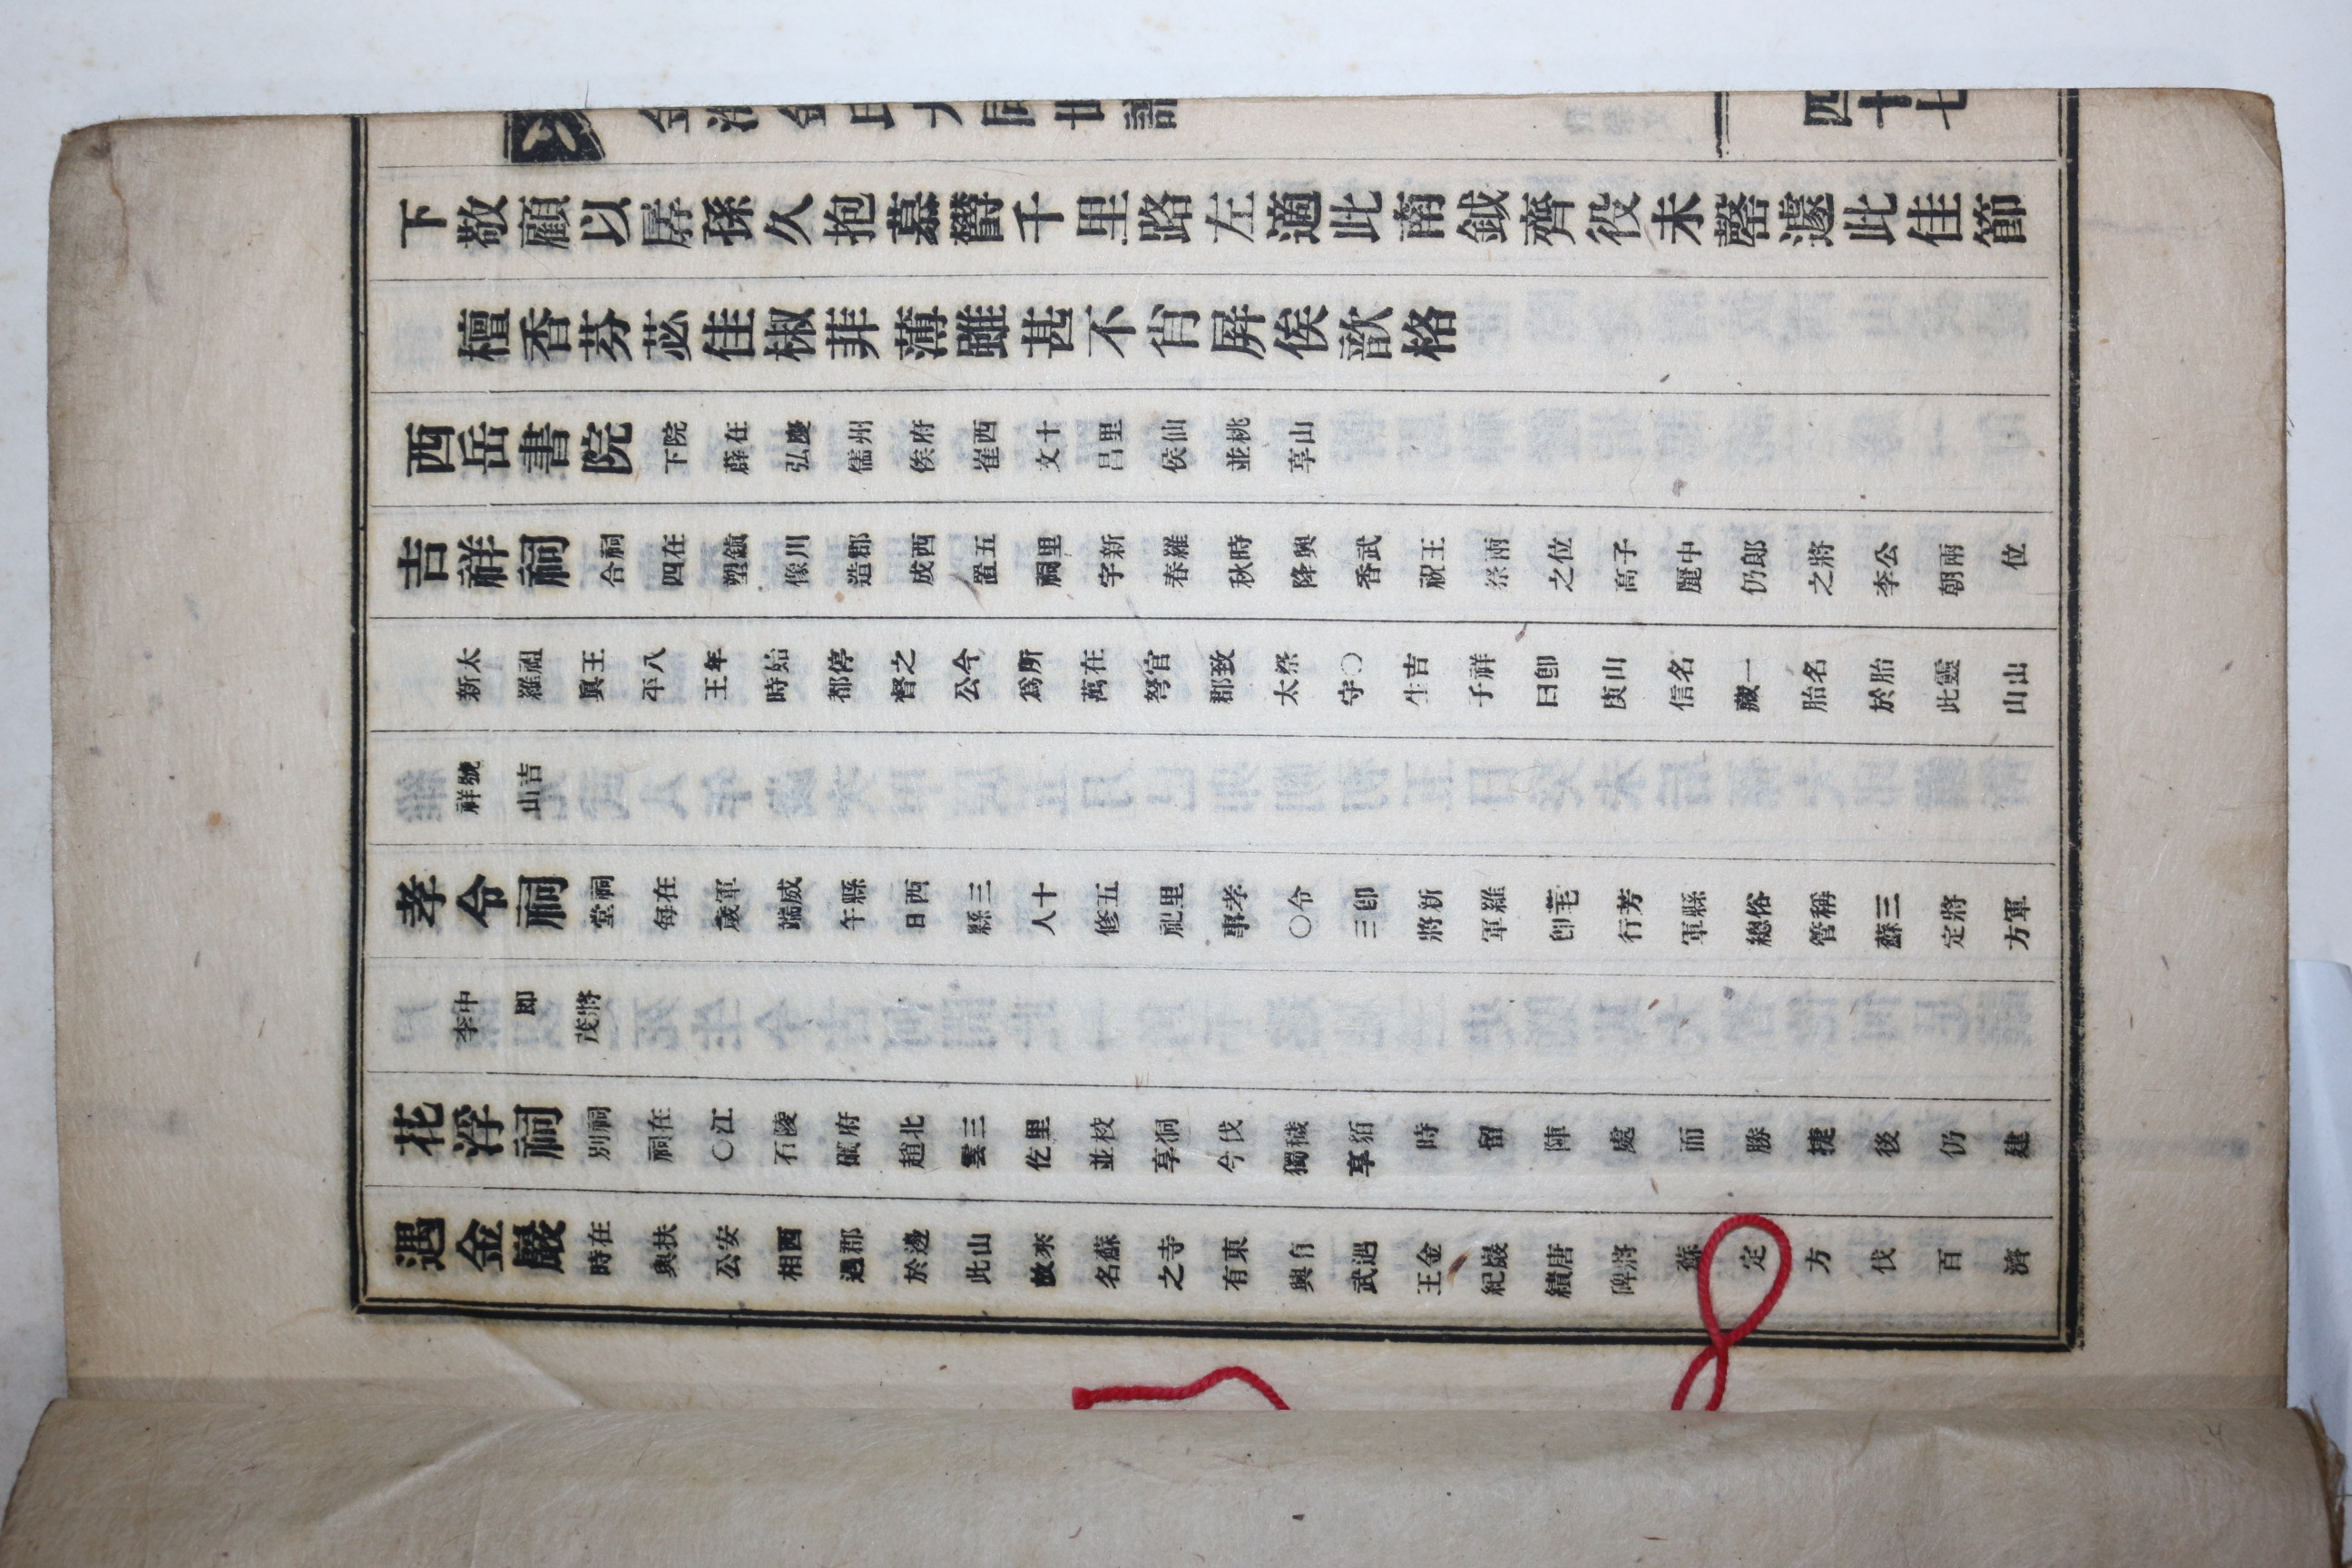 金海金氏大同世譜
四十七
下敬顧以孱孫久抱慕欝千里路左適此南鉞齊役未罄遽此佳節
檀香芬苾佳椒菲薄雖甚不肖屛俟歆格
西岳書院
院在慶州府西十里仙桃山
下薜弘儒侯崔文昌侯並享
吉祥祠
祠在鎮川郡西五里新羅時興武王兩位子中郞將公兩位
合四塑像造成置祠宇春秋降香祝祭之高麗仍之李朝
太祖王八年始停之今所在官致祭○吉祥卽山名一名胎靈山
新羅眞平王時都督公爲萬弩郡太守生子曰庾信藏胎於此山
號吉
祥山
孝令祠
祠在軍威縣西三十五里孝令卽新羅芼芳縣俗稱三將軍
堂每歲端午日縣人修祀事○三將軍卽行軍總管蘇定方
中即將
李茂
花浮祠
祠在江陵府北三里校洞伐穢貊時留陣處而勝捷後仍建
別祠○石碔趙雲仡並享今獨享
遇金巖
在扶安西郡邊山來蘇寺東有遇金巖唐將蘇定方伐百濟
時與公相遇於此故名之有興武王紀績碑